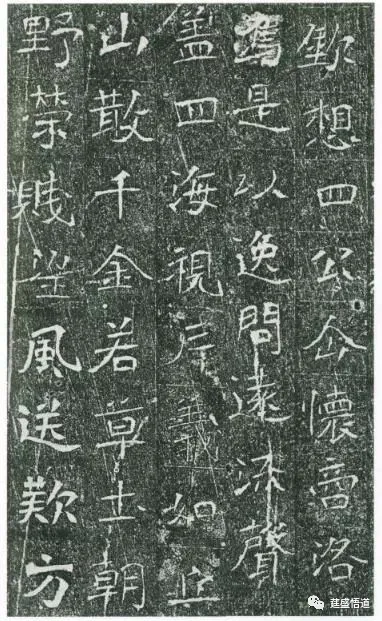 欽想四公企懷商洛
焉是以逸問遠流聲
盖四海視片義如丘
山散千金若草土朝
野榮賤望風送款方
莛盛悟道